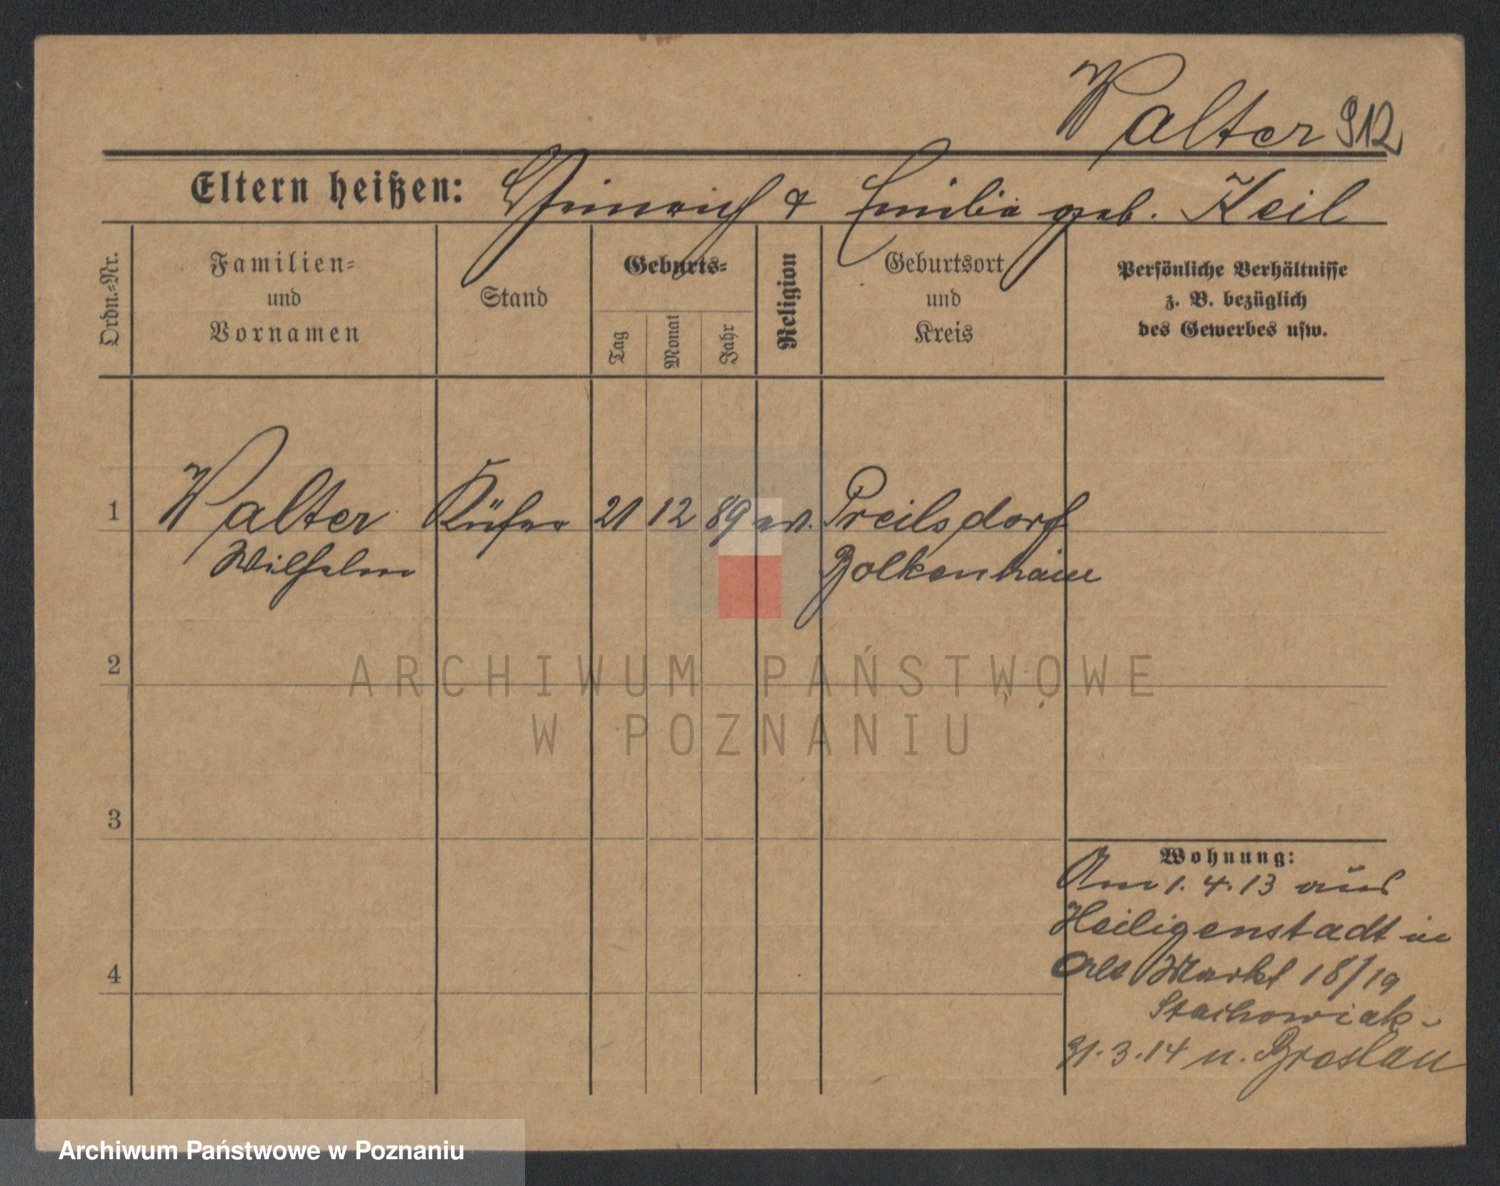 Walter 912
Eltern heißen: Heinrich & Emilia geb. Keil
Ordn.-Nr.
Familien-
und
Vornamen
Stand
Geburts-
Tag
Monat
Jahr
Religion
Geburtsort
und
Kreis
Persönliche Verhältnisse
z. B. bezüglich
des Gewerbes usw.
1 Walter Küfer 21 12 89 ev. Preilsdorf
Wilhelm Bolkenhain
2
ARCHIWUM PAŃSTWOWE
W POZNANIU
3
Wohnung:
Am 1.4.13 aus
Heiligenstadt in
Markt 18/19
4
Stachowiak-
31.3.14 n. Breslau
Archiwum Państwowe w Poznaniu